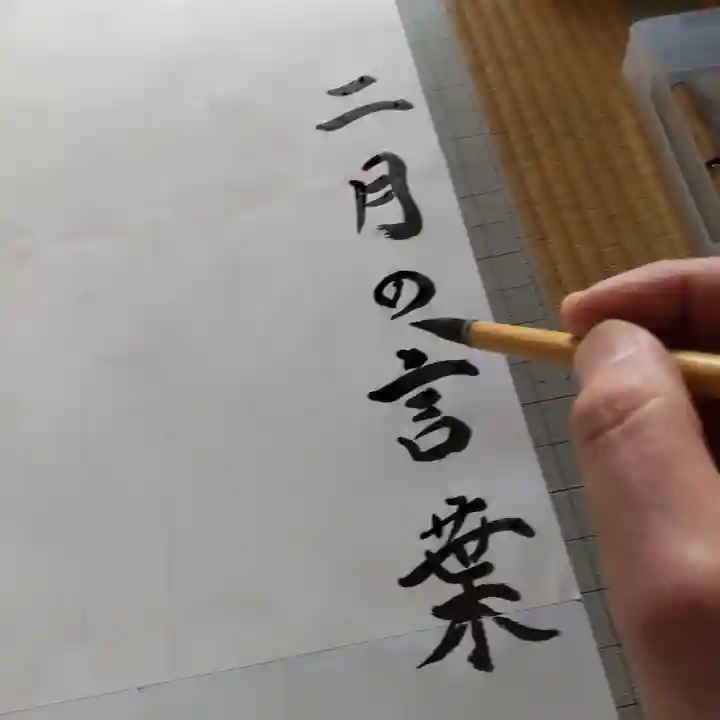 二月の言葉